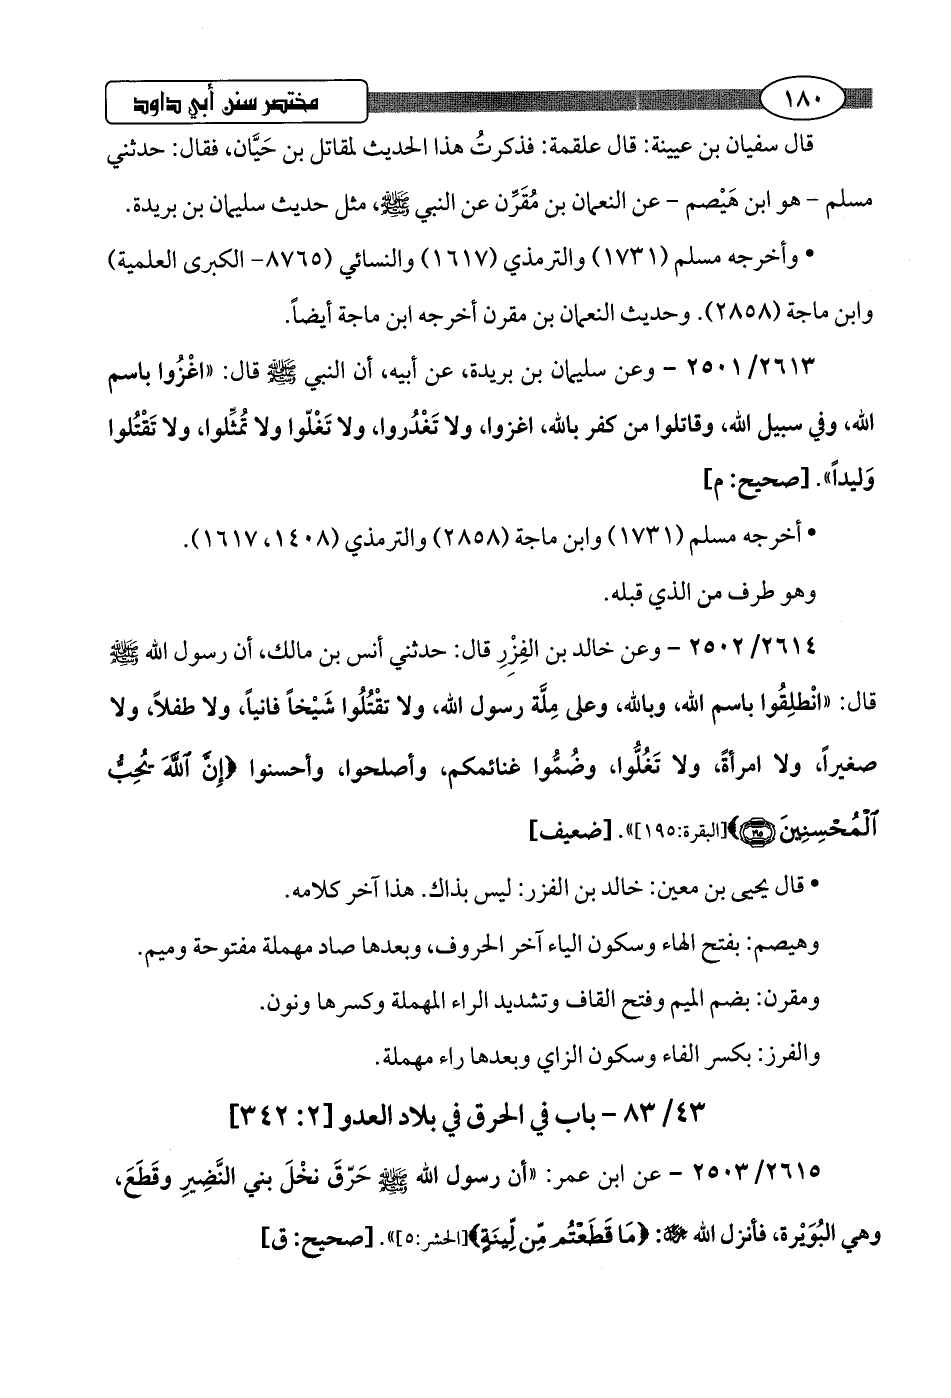 ١٨٠
مختصر سنن أبي داود
قال سفيان بن عيينة: قال علقمة: فذكرتُ هذا الحديث لمقاتل بن حَيَّان، فقال: حدثني
مسلم – هو ابن هَيْصم – عن النعمان بن مُقَرِّن عن النبي ﷺ، مثل حديث سليمان بن بريدة.
• وأخرجه مسلم (١٧٣١) والترمذي (١٦١٧) والنسائي (٨٧٦٥– الكبرى العلمية)
وابن ماجة (٢٨٥٨). وحديث النعمان بن مقرن أخرجه ابن ماجة أيضاً.
٢٥٠١/٢٦١٣ – وعن سليمان بن بريدة، عن أبيه، أن النبي ﷺ قال: «اغْزُوا باسم
الله، وفي سبيل الله، وقاتلوا من كفر بالله، اغزوا، ولا تَغْدُروا، ولا تَغْلّوا ولا تُمثِّلوا، ولا تَقْتُلوا
وَليداً». [صحيح: م]
• أخرجه مسلم (١٧٣١) وابن ماجة (٢٨٥٨) والترمذي (١٤٠٨، ١٦١٧).
وهو طرف من الذي قبله.
٢٥٠٢/٢٦١٤ – وعن خالد بن الفِزْرِ قال: حدثني أنس بن مالك، أن رسول الله ﷺ
قال: «انْطلِقُوا باسم الله، وبالله، وعلى مِلَّة رسول الله، ولا تقْتُلُوا شَيْخاً فانياً، ولا طفلاً، ولا
صغيراً، ولا امرأةً، ولا تَغُلُّوا، وضُمُّوا غنائمكم، وأصلحوا، وأحسنوا ﴿إِنَّ ٱللَّهَ يُحِبُّ
ٱلْمُحْسِنِينَ ١٩٥﴾[البقرة:١٩٥]». [ضعيف]
• قال يحيى بن معين: خالد بن الفزر: ليس بذاك. هذا آخر كلامه.
وهيصم: بفتح الهاء وسكون الياء آخر الحروف، وبعدها صاد مهملة مفتوحة وميم.
ومقرن: بضم الميم وفتح القاف وتشديد الراء المهملة وكسرها ونون.
والفرز: بكسر الفاء وسكون الزاي وبعدها راء مهملة.
٨٣/٤٣ – باب في الحرق في بلاد العدو [٢: ٣٤٢]
٢٥٠٣/٢٦١٥ – عن ابن عمر: «أن رسول الله ﷺ حَرّقَ نخْلَ بني النَّضِيرِ وقَطَعَ،
وهي البُوَيْرة، فأنزل الله ﷻ: ﴿مَا قَطَعْتُم مِّن لِّينَةٍ﴾[الحشر:٥]». [صحيح: ق]